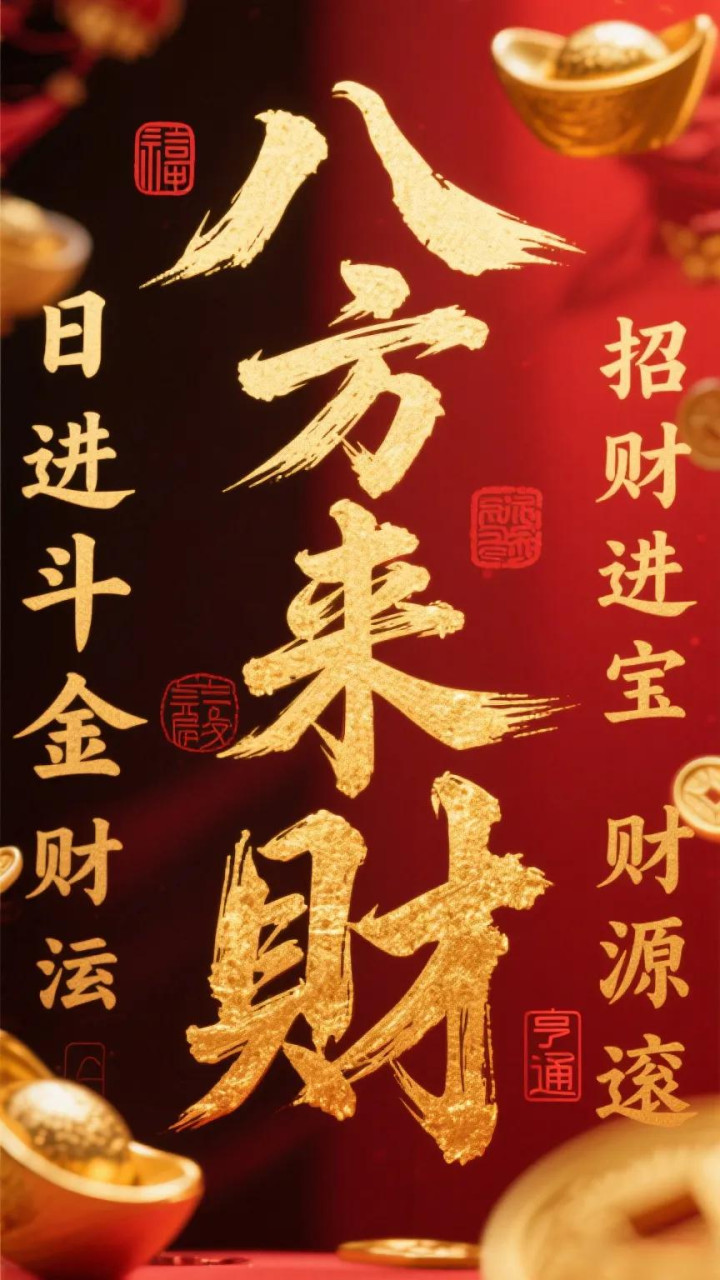 八方来财
招财进宝 财源滚
日进斗金财运
福
亨通